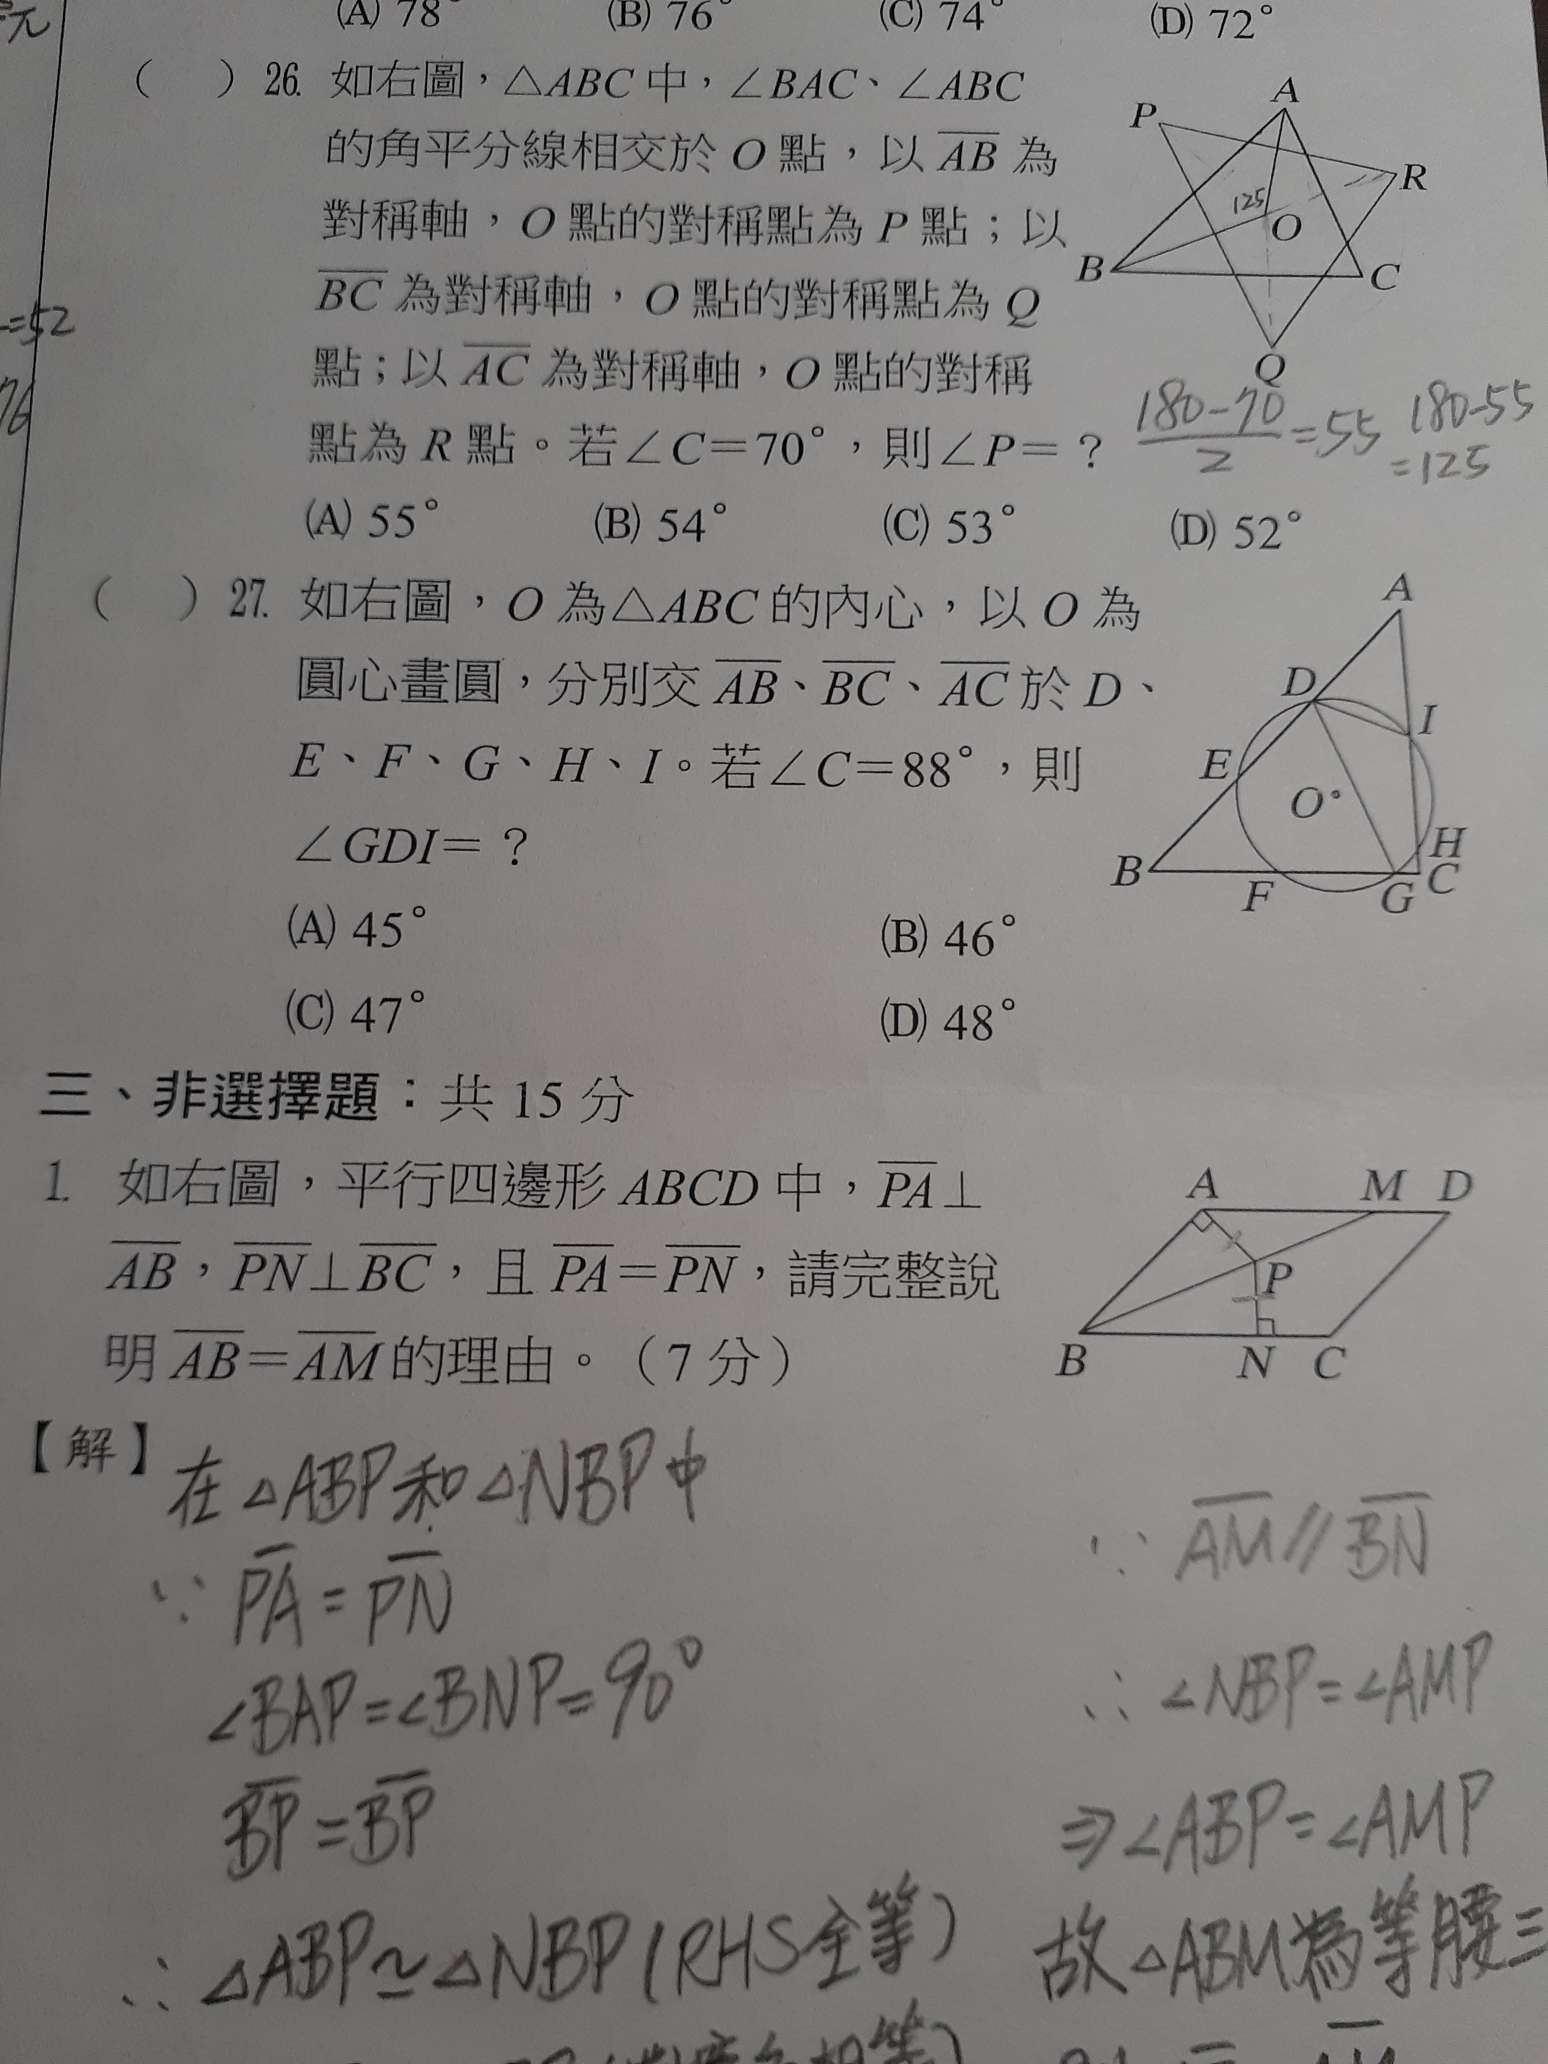 元
(A) 78° (B) 76° (C) 74° (D) 72°
( ) 26. 如右圖，△ABC 中，∠BAC、∠ABC
的角平分線相交於 O 點，以 AB 為
對稱軸，O 點的對稱點為 P 點；以
BC 為對稱軸，O 點的對稱點為 Q
點；以 AC 為對稱軸，O 點的對稱
點為 R 點。若∠C＝70°，則∠P＝？
A
P
R
125
O
B
C
Q
=52
76
(180-70)/2 =55 180-55
=125
(A) 55° (B) 54° (C) 53° (D) 52°
( ) 27. 如右圖，O 為△ABC 的內心，以 O 為
圓心畫圓，分別交 AB、BC、AC 於 D、
E、F、G、H、I。若∠C＝88°，則
∠GDI＝？
A
D
I
E
O
H
B
F
G
C
(A) 45° (B) 46°
(C) 47° (D) 48°
三、非選擇題：共 15 分
1. 如右圖，平行四邊形 ABCD 中，PA⊥
AB，PN⊥BC，且 PA＝PN，請完整說
明 AB＝AM 的理由。（7 分）
A M D
P
B N C
【解】在△ABP和△NBP中
∵ PA = PN
∠BAP=∠BNP=90°
BP=BP
∴ △ABP≅△NBP(RHS全等)
∵ AM // BN
∴ ∠NBP=∠AMP
⇒∠ABP=∠AMP
故△ABM為等腰三